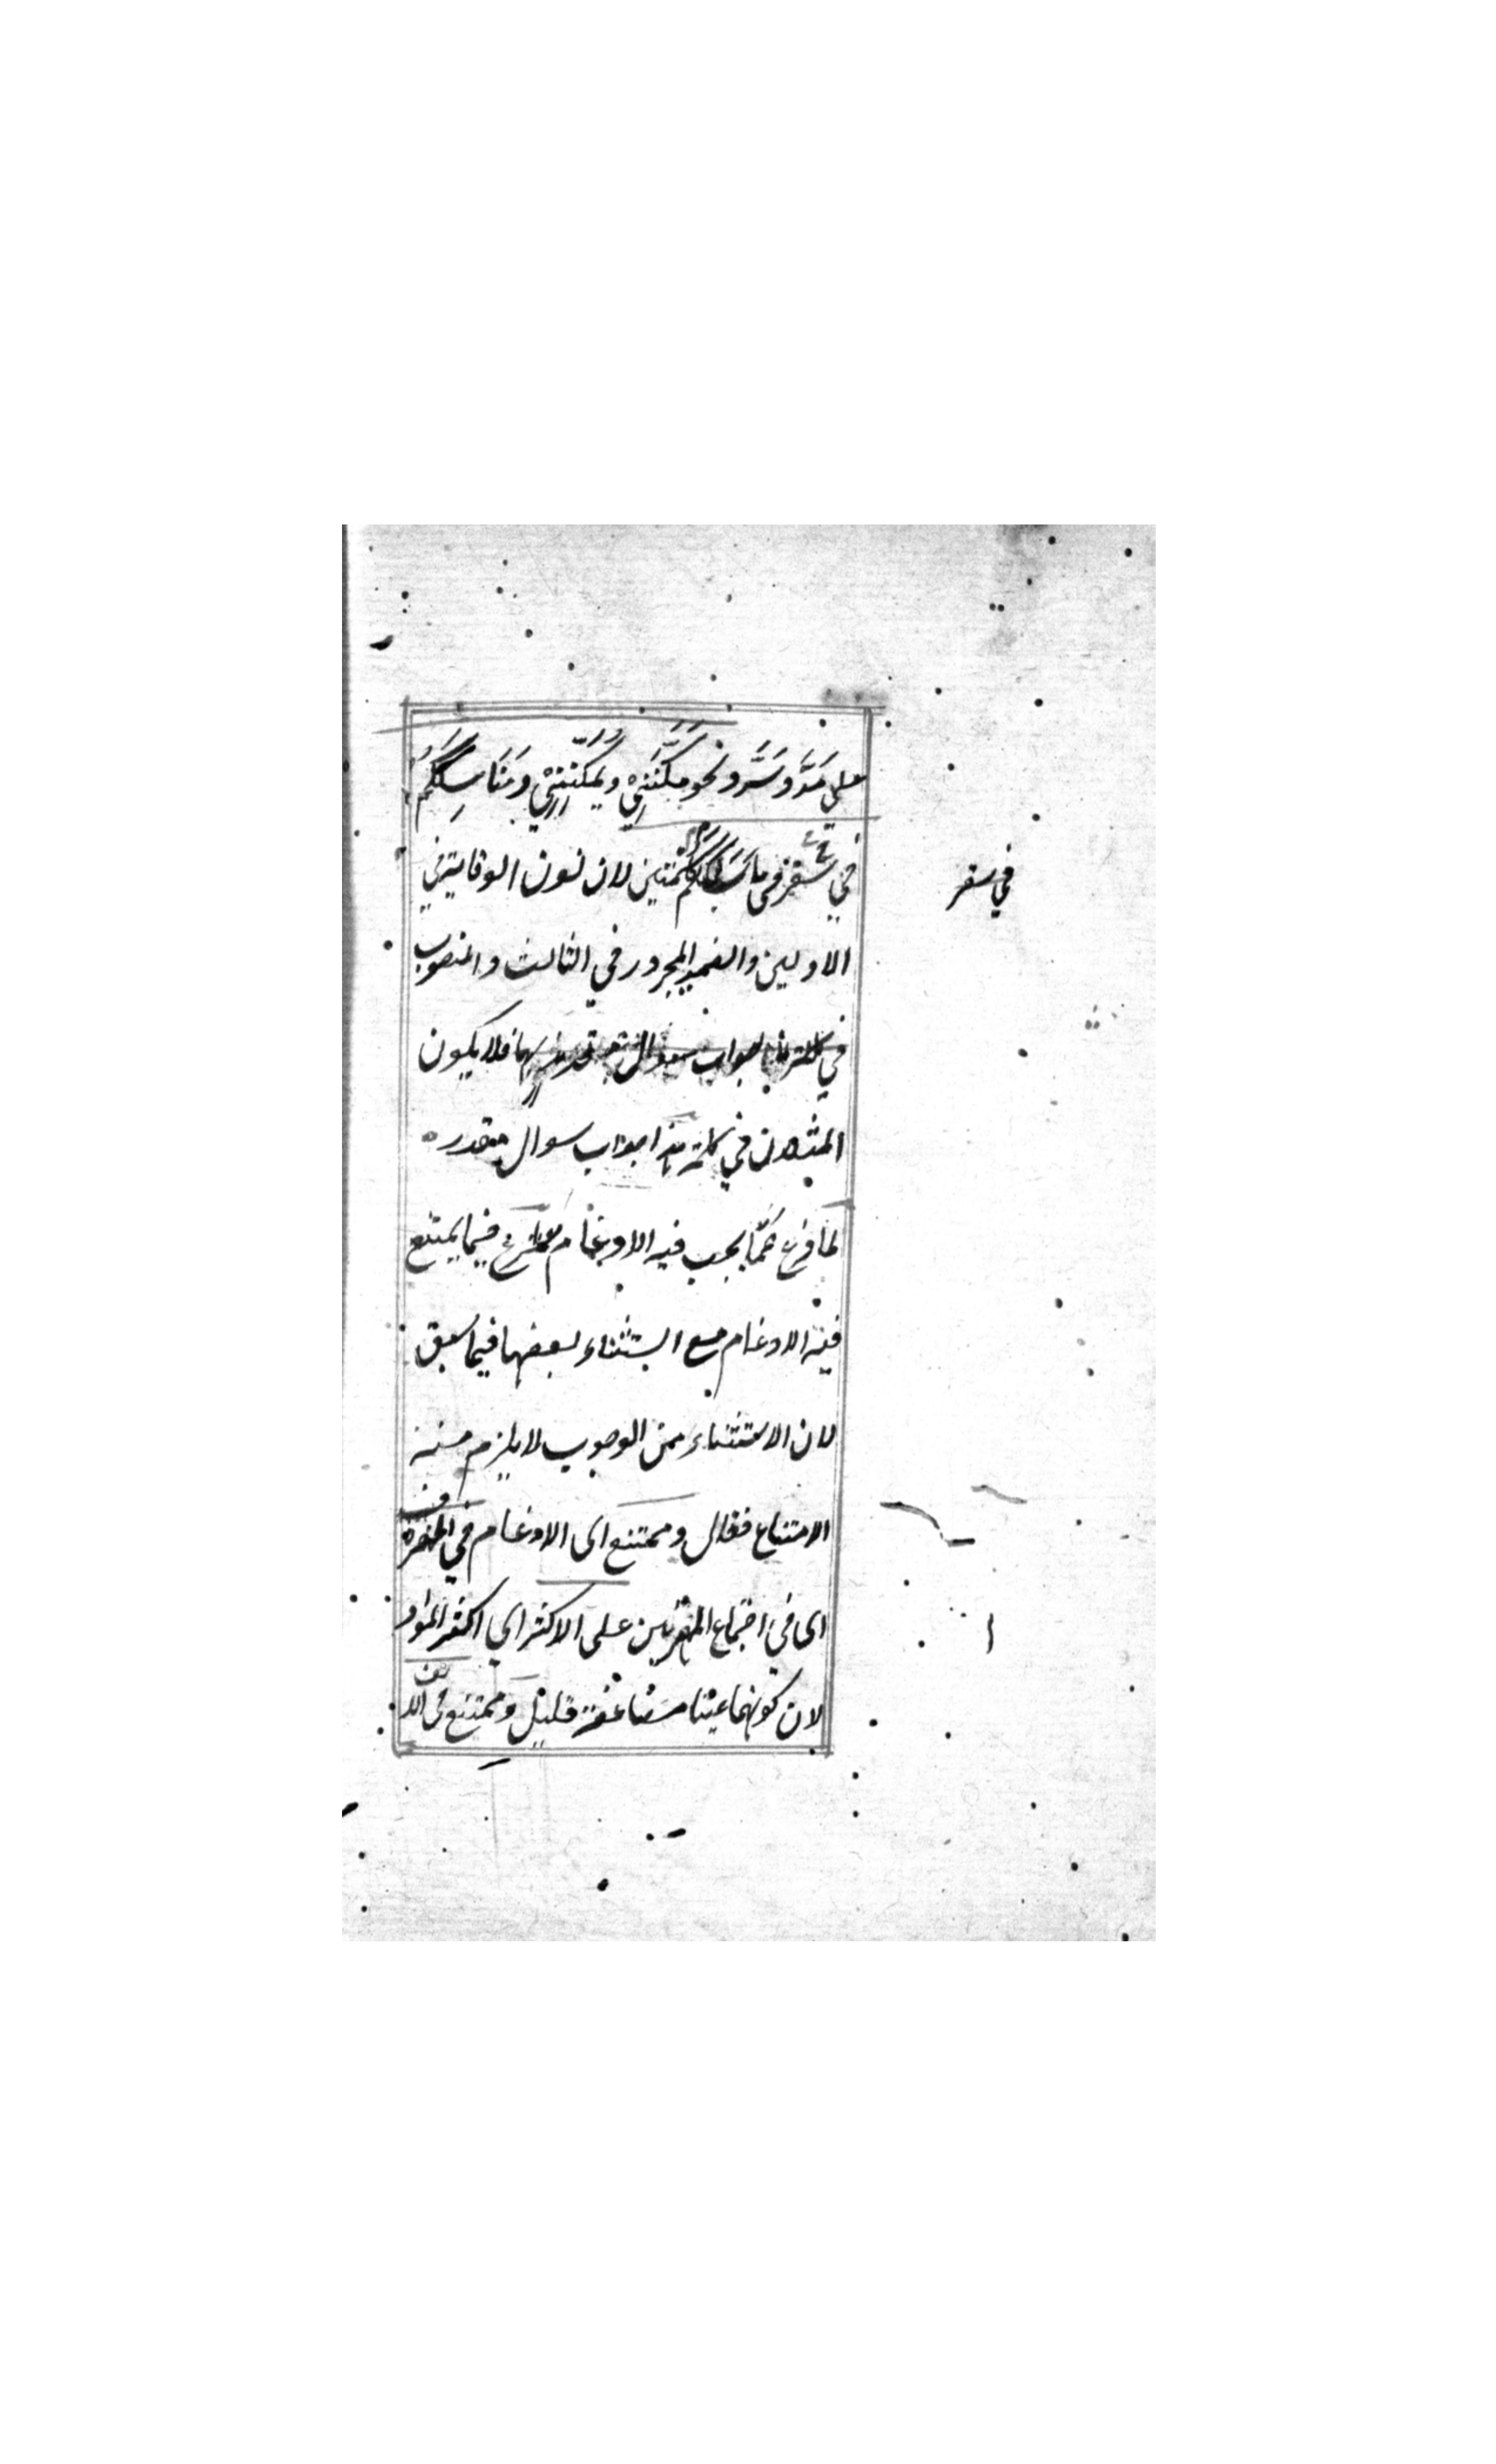 على مَدَّ وَسَرَّ ونحو مَكَّنَنِيْ ويُمَكِّنُنِيْ وَمَنَاسِكَكُمْ
في سقر في ما سَلَكَكُمْ كلمتين لان نون الوقاية في
الاوليين والضمير المجرور في الثالث والمنصوب
في فلا يكون
المثلان في كلمة هذا جواب سوال مقدر
لما فرغ عمّا يجب فيه الادغام شرع فيما يمتنع
فيه الادغام مع استثناء بعضها فيما سبق
لان الاستثناء من الوجوب لا يلزم منه
الامتناع فقال وممتنع اى الادغام في الهمزة
اى في اجتماع الهمزتين على الاكثر اي اكثر المواد
لان كونهما عينا مضاعفة قليل وممتنع في الالف
في سقر